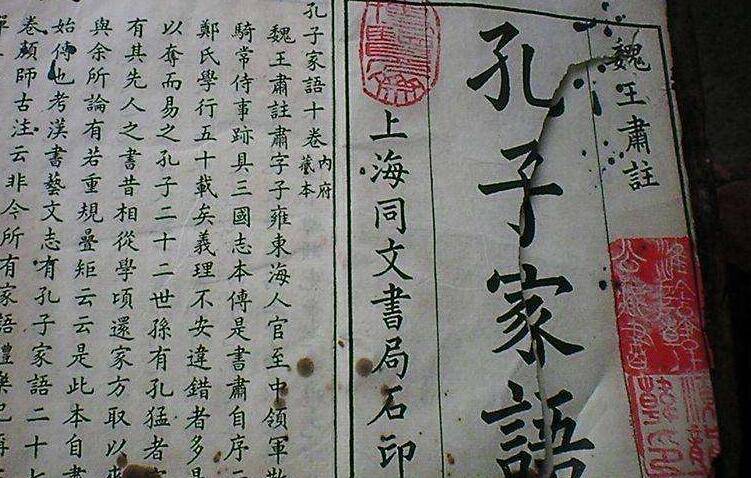 魏王肅註
孔子家語
上海同文書局石印
孔子家語十卷內府藏本
魏王肅註肅字子雍東海人官至中領軍散
騎常侍事跡具三國志本傳是書肅自序云
鄭氏學行五十載矣義理不安違錯者多是
以奪而易之孔子二十二世孫有孔猛者家
有其先人之書昔相從學頃還家方取以來
與余所論有若重規疊矩云云是此本自肅
始傳也考漢書藝文志有孔子家語二十七
卷顏師古注云非今所有家語禮樂記